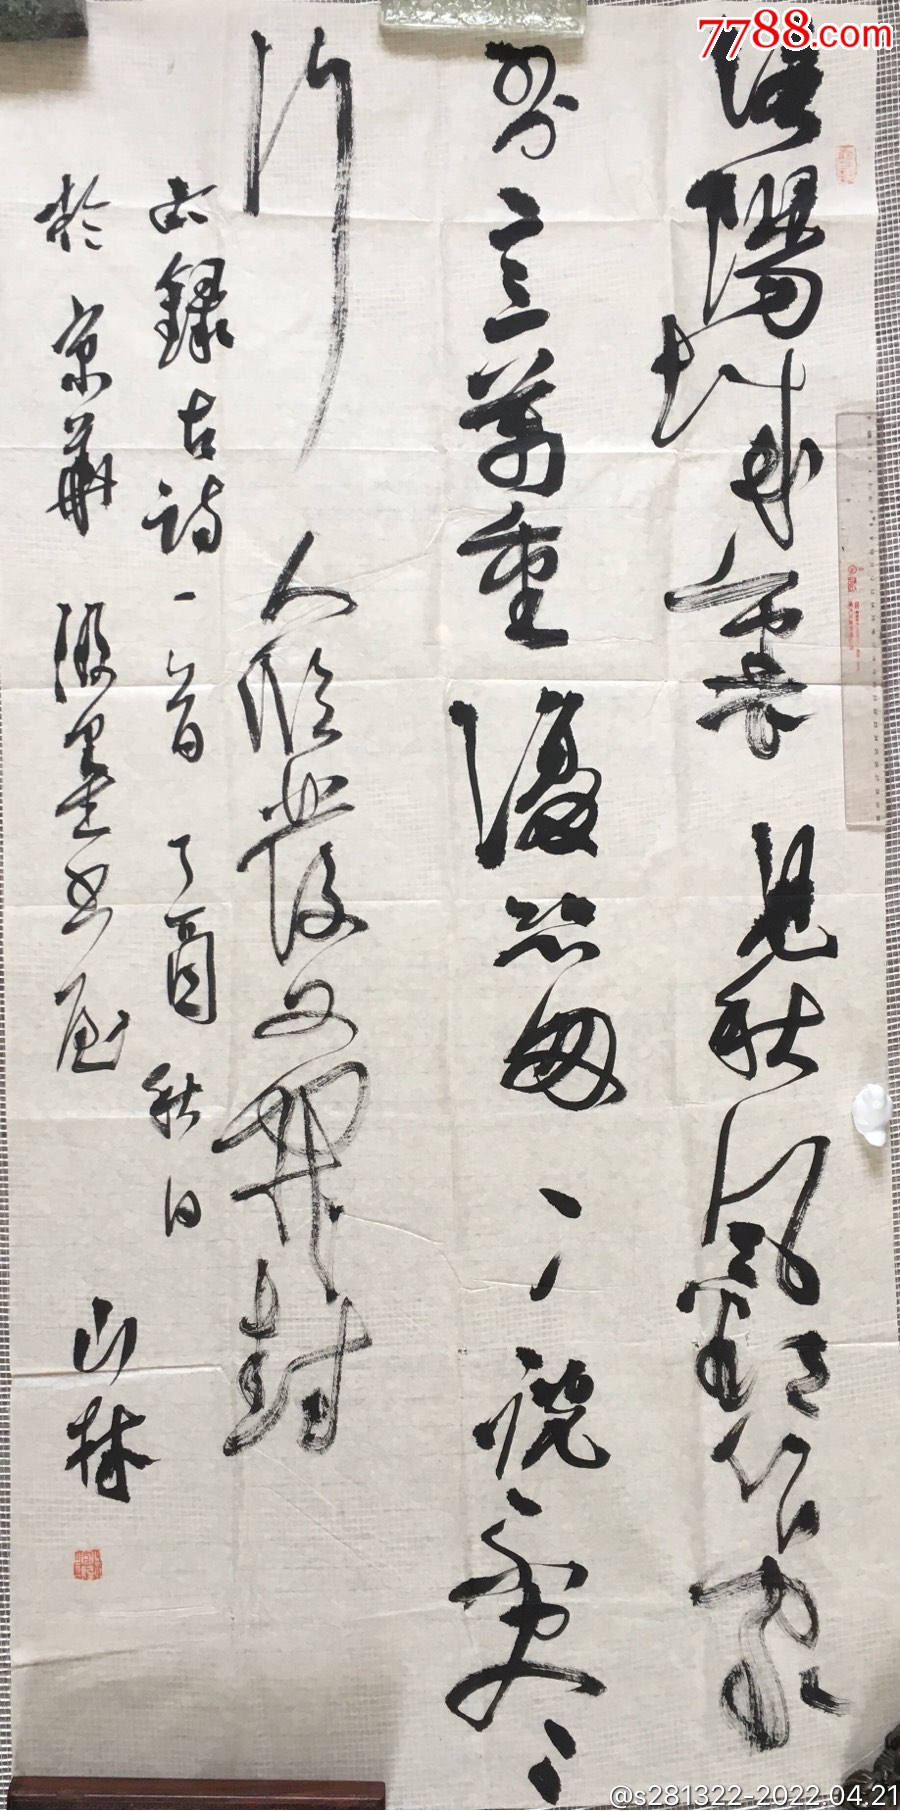 7788.com
洛陽城裏見秋風欲作家
書意萬重復恐匆〻說不盡
行人臨發又開封
右錄古詩一首丁酉秋日
於京華墨書屋山林
@s281322-2022.04.21